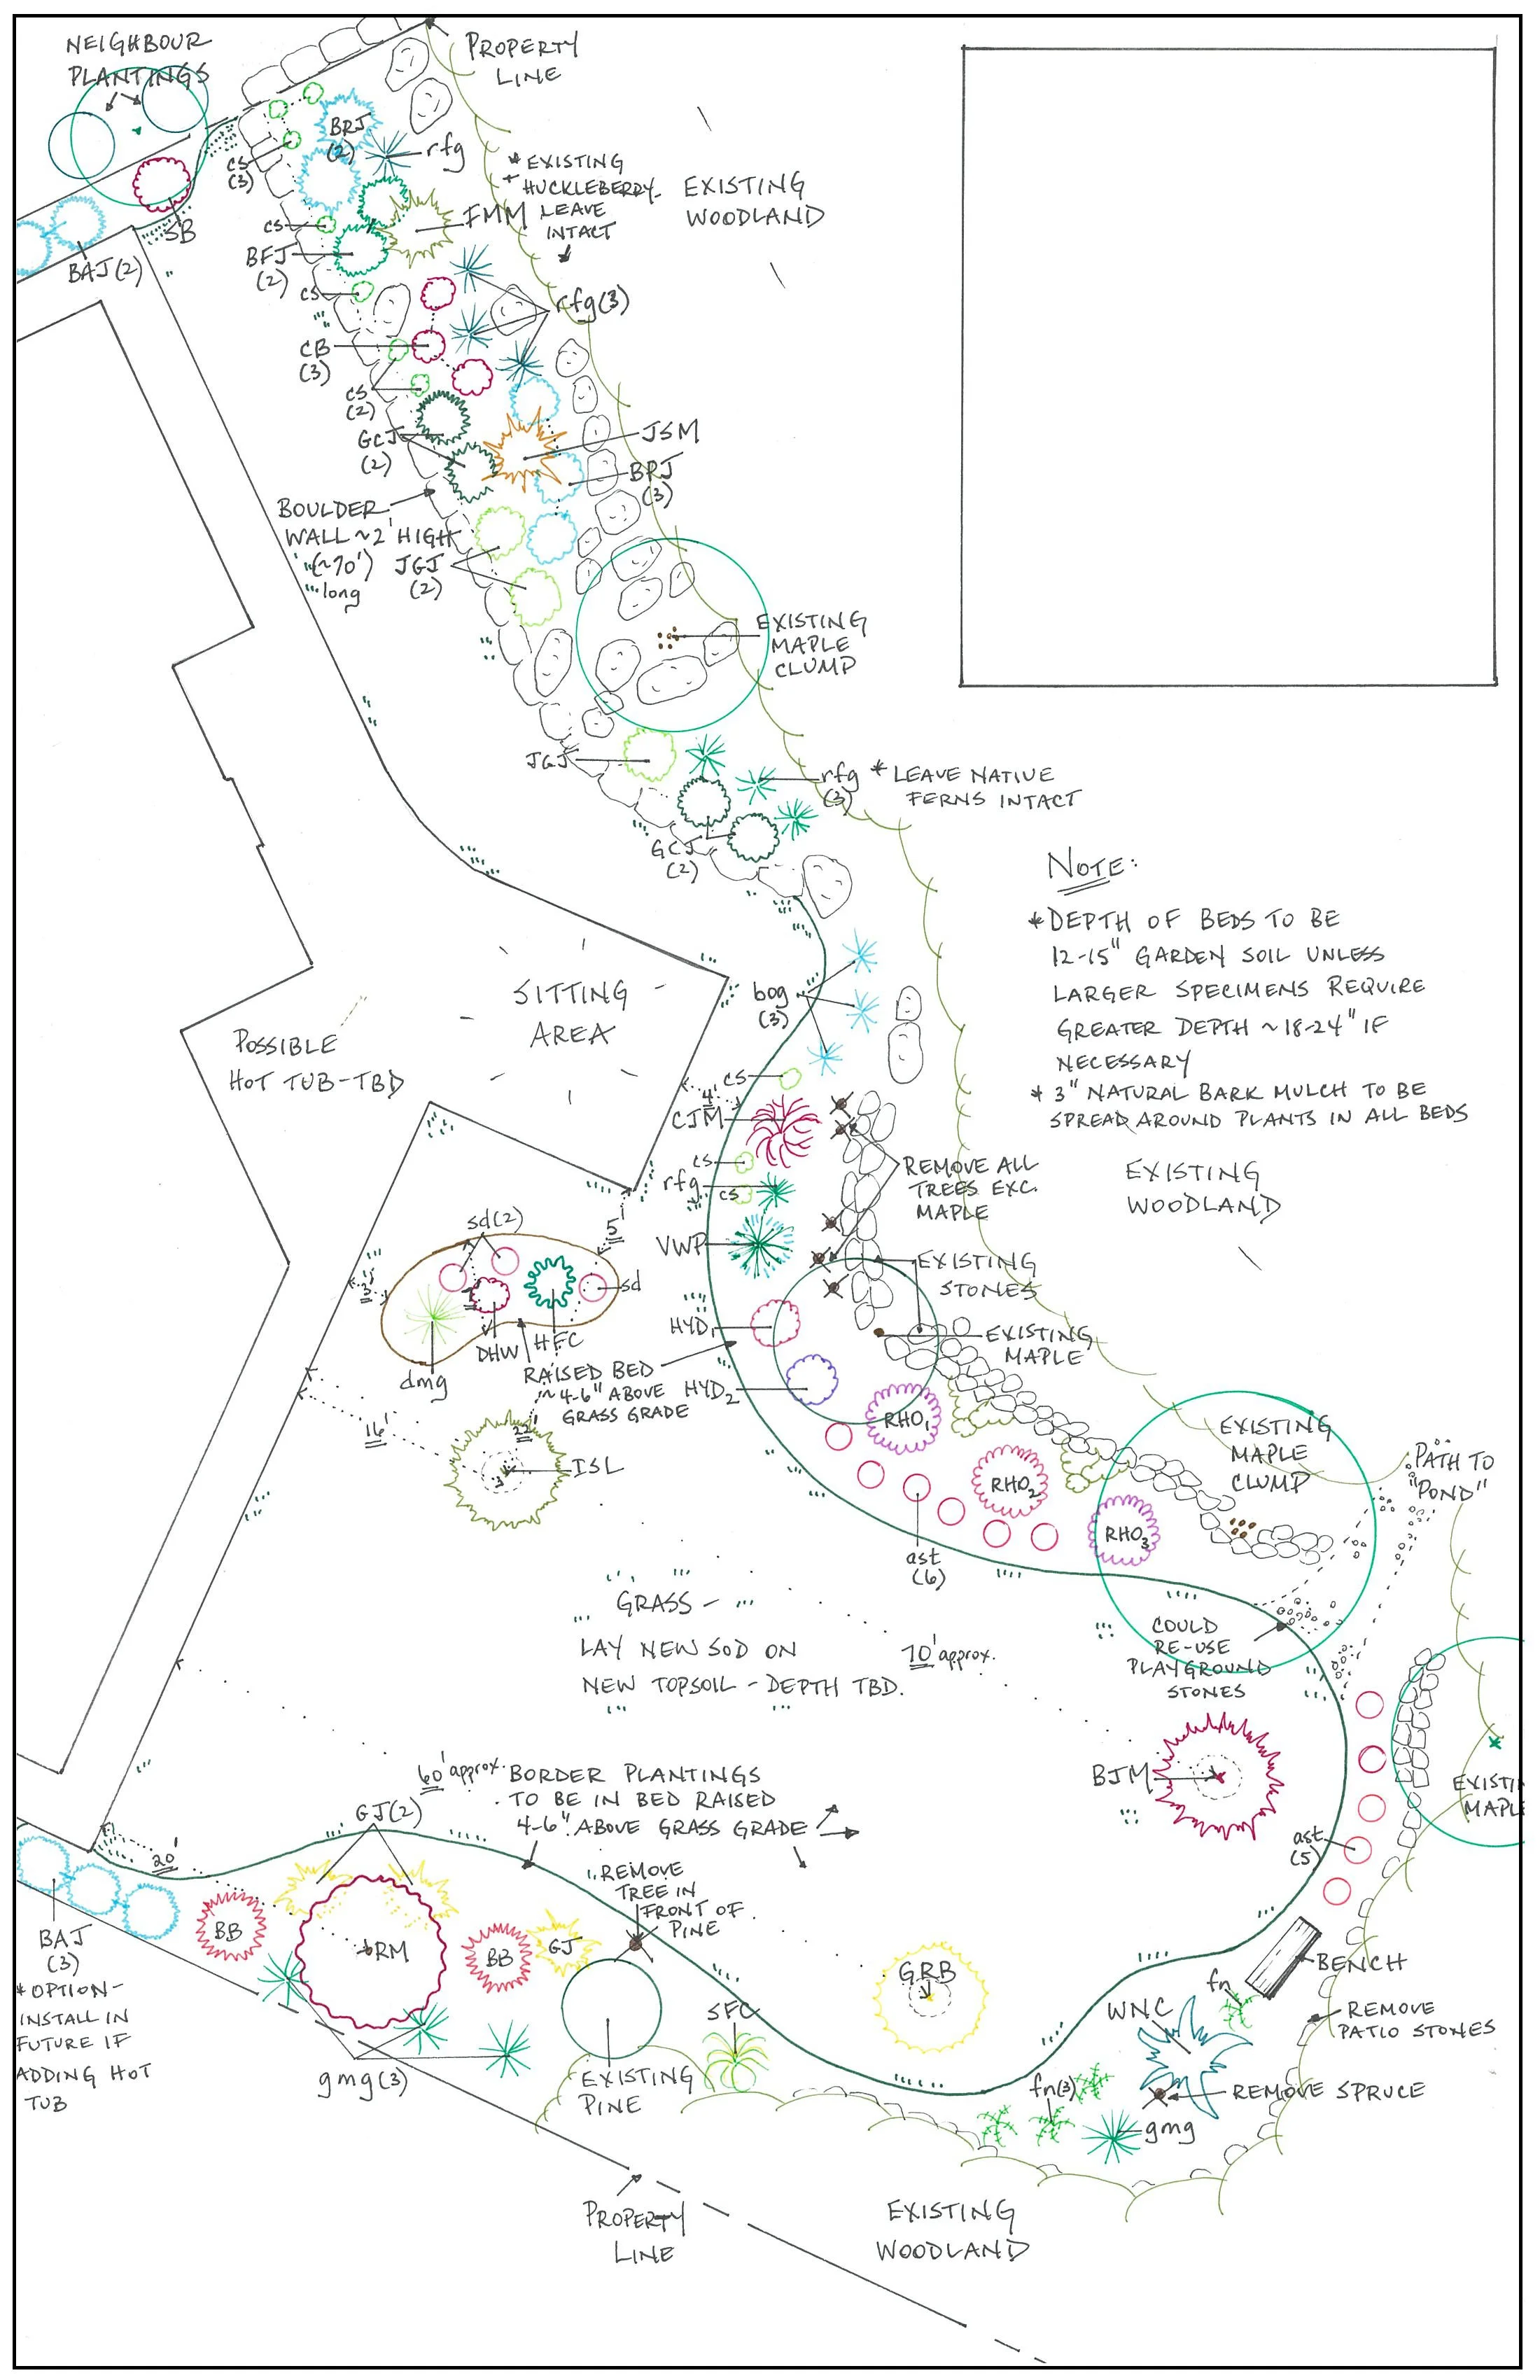 NEIGHBOUR
PLANTINGS
PROPERTY
LINE
BRJ
(2)
rfg
cs
(3)
* EXISTING
HUCKLEBERRY
LEAVE
INTACT
EXISTING
WOODLAND
SB
cs
FMM
BAJ(2)
BFJ
(2)
cs
rfg(3)
CB
(3)
cs
(2)
GCJ
(2)
JSM
BPJ
(3)
BOULDER
WALL ~2' HIGH
(~70')
long
JGJ
(2)
EXISTING
MAPLE
CLUMP
JGJ
rfg
(3)
* LEAVE NATIVE
FERNS INTACT
GCJ
(2)
NOTE:
* DEPTH OF BEDS TO BE
12-15" GARDEN SOIL UNLESS
LARGER SPECIMENS REQUIRE
GREATER DEPTH ~18-24" IF
NECESSARY
* 3" NATURAL BARK MULCH TO BE
SPREAD AROUND PLANTS IN ALL BEDS
SITTING
AREA
bog
(3)
POSSIBLE
HOT TUB-TBD
cs
4'
CJM
cs
rfg
cs
REMOVE ALL
TREES EXC.
MAPLE
EXISTING
WOODLAND
VWP
sd(2)
5'
sd
EXISTING
STONES
3'
HYD1
EXISTING
MAPLE
dmg
DHW
HFC
RAISED BED
~ 4-6" ABOVE
GRASS GRADE
HYD2
RHO1
16'
22'
ISL
RHO2
EXISTING
MAPLE
CLUMP
PATH TO
"POND"
RHO3
ast
(6)
GRASS -
LAY NEW SOD ON
NEW TOPSOIL - DEPTH TBD.
70' approx.
COULD
RE-USE
PLAYGROUND
STONES
BJM
EXISTI
MAPL
60' approx.
BORDER PLANTINGS
TO BE IN BED RAISED
4-6" ABOVE GRASS GRADE
GJ(2)
ast
(5)
20'
REMOVE
TREE IN
FRONT OF
PINE
BB
RM
BB
GJ
BAJ
(3)
* OPTION-
INSTALL IN
FUTURE IF
ADDING HOT
TUB
GRB
BENCH
fn
SFC
WNC
REMOVE
PATIO STONES
gmg(3)
EXISTING
PINE
fn(3)
REMOVE SPRUCE
gmg
PROPERTY
LINE
EXISTING
WOODLAND